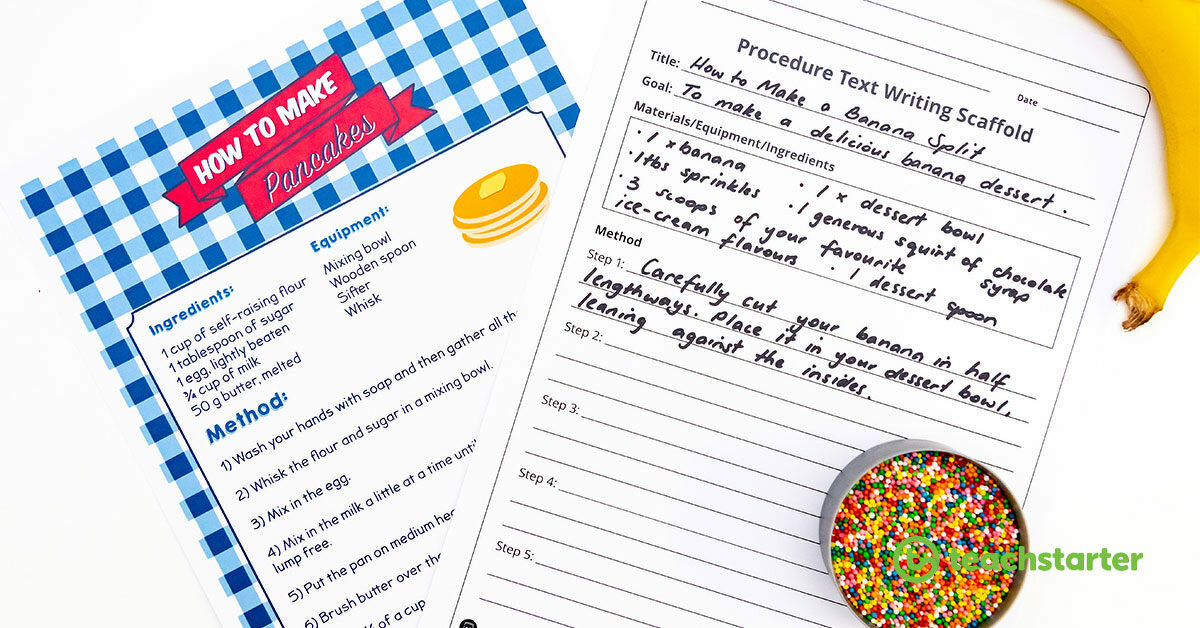 HOW TO MAKE
Pancakes
Ingredients:
1 cup of self-raising flour
1 tablespoon of sugar
1 egg, lightly beaten
¾ cup of milk
50 g butter, melted
Equipment:
Mixing bowl
Wooden spoon
Sifter
Whisk
Method:
1) Wash your hands with soap and then gather all th
2) Whisk the flour and sugar in a mixing bowl.
3) Mix in the egg.
4) Mix in the milk a little at a time until
lump free.
5) Put the pan on medium hea
6) Brush butter over the
of a cup
Procedure Text Writing Scaffold
Date
Title: How to Make a Banana Split
Goal: To make a delicious banana dessert.
Materials/Equipment/Ingredients
• 1 x banana
• 1tbs sprinkles
• 3 scoops of your favourite
ice-cream flavours
• 1 x dessert bowl
• 1 generous squint of chocolate
syrap
• 1 dessert spoon
Method
Step 1: Carefully cut your banana in half
lengthways. Place it in your dessert bowl,
leaning against the insides.
Step 2:
Step 3:
Step 4:
Step 5:
teachstarter